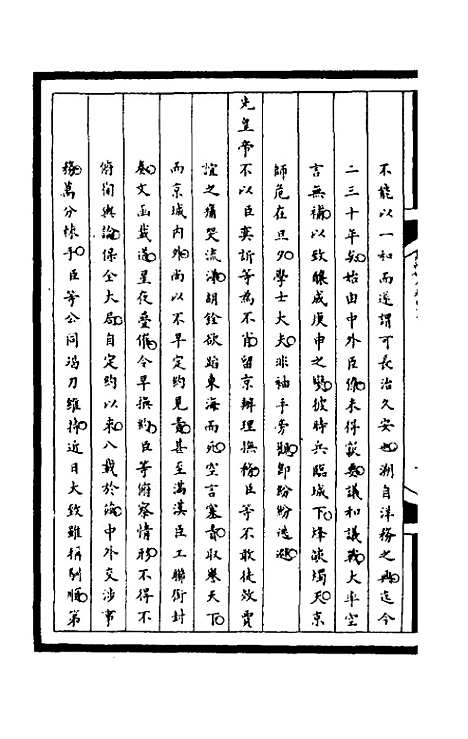 不能以一和而遂謂可長治久安也溯自洋務之興迄今
二三十年矣始由中外臣僚未得窾要議和議戰大率空
言無補以致釀成庚申之變彼時兵臨城下烽燧燭天京
師危在旦夕學士大夫非袖手旁觀卽紛紛逃避
先皇帝不以臣奕訢等為不肖留京辦理撫務臣等不敢徒效賈
誼之痛哭流涕胡銓欲蹈東海而死空言塞責取譽天下
而京城內外尚以不早定約見責甚至滿漢臣工聯銜封
奏文函載道星夜迭催令早換約臣等俯察情形不得不
俯徇輿論保全大局自定約以來八載於茲中外交涉事
務萬分棘手臣等公同竭力維持近日大致雖稱馴順第